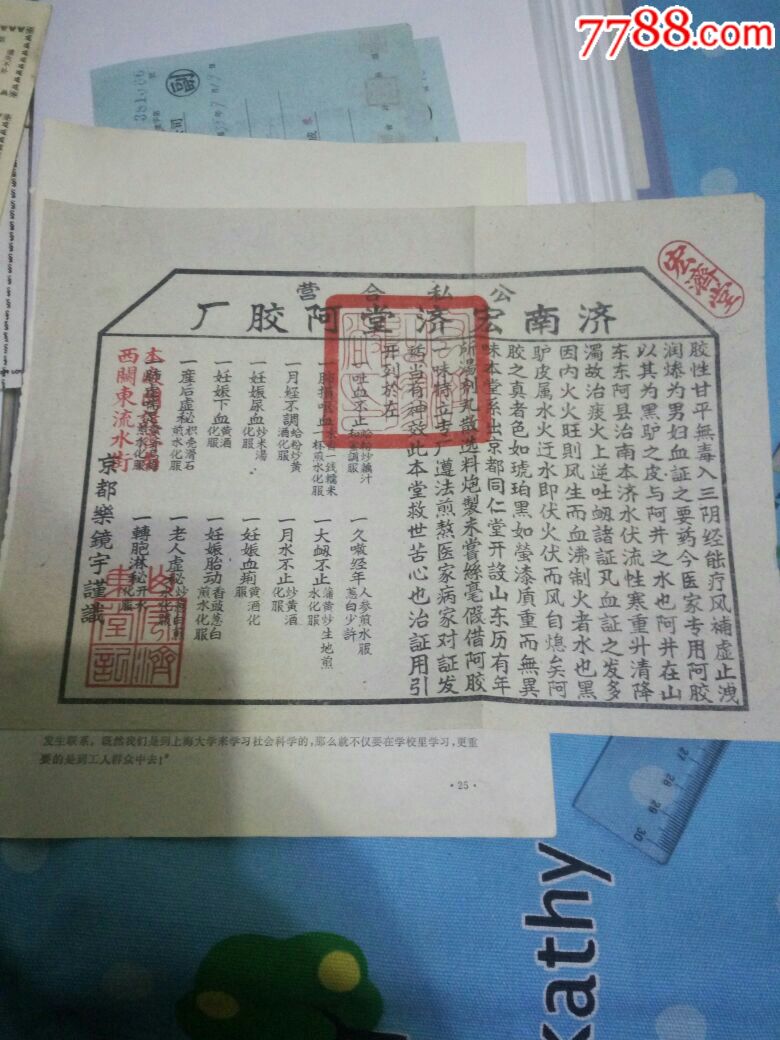 7788.com
宏濟堂
公私合营
济南宏济堂阿胶厂
胶性甘平無毒入三阴经能疗风補虚止洩
润燥为男妇血証之要药今医家专用阿胶
以其为黑驴之皮与阿井之水也阿井在山
东东阿县治南本济水伏流性寒重升清降
濁故治痰火上逆吐衂諸証凡血証之发多
因内火火旺則风生而血沸制火者水也黑
驴皮属水火迂水即伏火伏而风自熄矣阿
胶之真者色如琥珀黑如莹漆质重而無異
味本堂系出京都同仁堂开設山东历有年
所湯剤丸散选料炮製未嘗絲毫假借阿胶
一味特立专厂遵法煎熬医家病家对証发
葯当有神效此本堂救世苦心也治証用引
开列於左
一吐血不止
一久嗽经年 人参煎水服 葱白少許
一大衂不止 蒲黄炒生地煎水化服
一月经不調 蛤粉炒黄酒化服
一月水不止 炒黄酒化服
一妊娠尿血 炒米湯化服
一妊娠血痢 黄酒化服
一妊娠下血 黄酒化服
一妊娠胎动 香豉葱白煎水化服
一産后虚秘 枳壳滑石煎水化服
一老人虚秘
一轉胞淋秘 开水化服
西關東流水街
京都樂鏡宇謹識
发生联系，既然我们是到上海大学来学习社会科学的，那么就不仅要在学校里学习，更重
要的是到工人群众中去！"
·25·
27
28
29
30
kathy